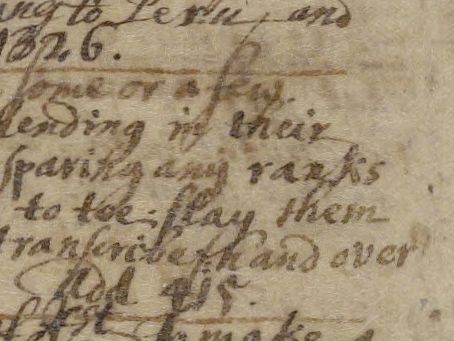 to Peru, and
1326.
some or a few
lending in their
sparing any ranks
to toe: slay them
transcribeth and over
Add 415.
make a